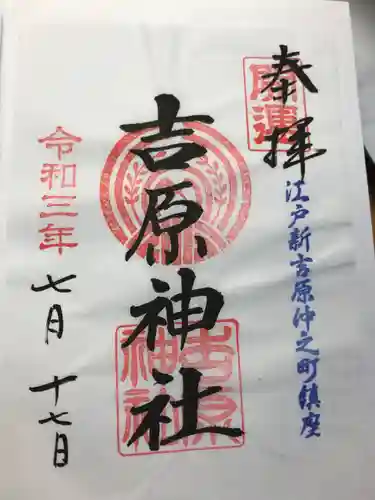 奉拝
開運
江戸新吉原仲之町鎮座
吉原神社
吉原神社
令和三年
七月十七日